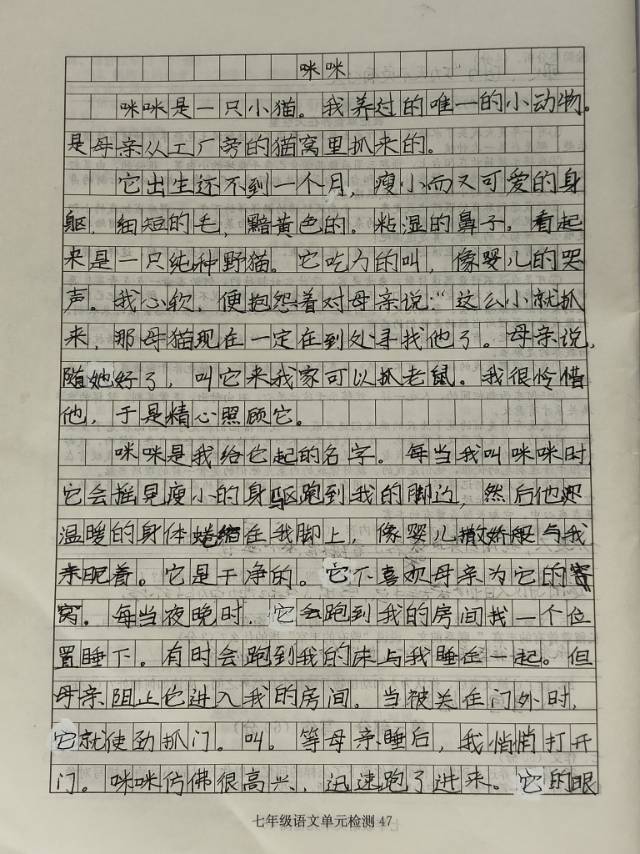 咪咪
咪咪是一只小猫。我养过的唯一的小动物。
是母亲从工厂旁的猫窝里抓来的。
它出生还不到一个月，瘦小而又可爱的身
躯，细短的毛，黯黄色的。粘湿的鼻子。看起
来是一只纯种野猫。它吃力的叫，像婴儿的哭
声。我心软，便抱怨着对母亲说：“这么小就抓
来，那母猫现在一定在到处寻找他了。母亲说，
随她好了，叫它来我家可以抓老鼠。我很怜惜
他，于是精心照顾它。
咪咪是我给它起的名字。每当我叫咪咪时
它会摇晃瘦小的身驱跑到我的脚边，然后他把
温暖的身体蜷缩在我脚上，像婴儿撒娇般与我
来昵着。它是干净的。它不喜欢母亲为它的
窝。每当夜晚时，它会跑到我的房间找一个位
置睡下。有时会跑到我的床与我睡在一起。但
母亲阻止它进入我的房间。当被关在门外时，
它就使劲抓门。叫。等母亲睡后，我悄悄打开
门。咪咪仿佛很高兴，迅速跑了进来。它的眼
七年级语文单元检测 47